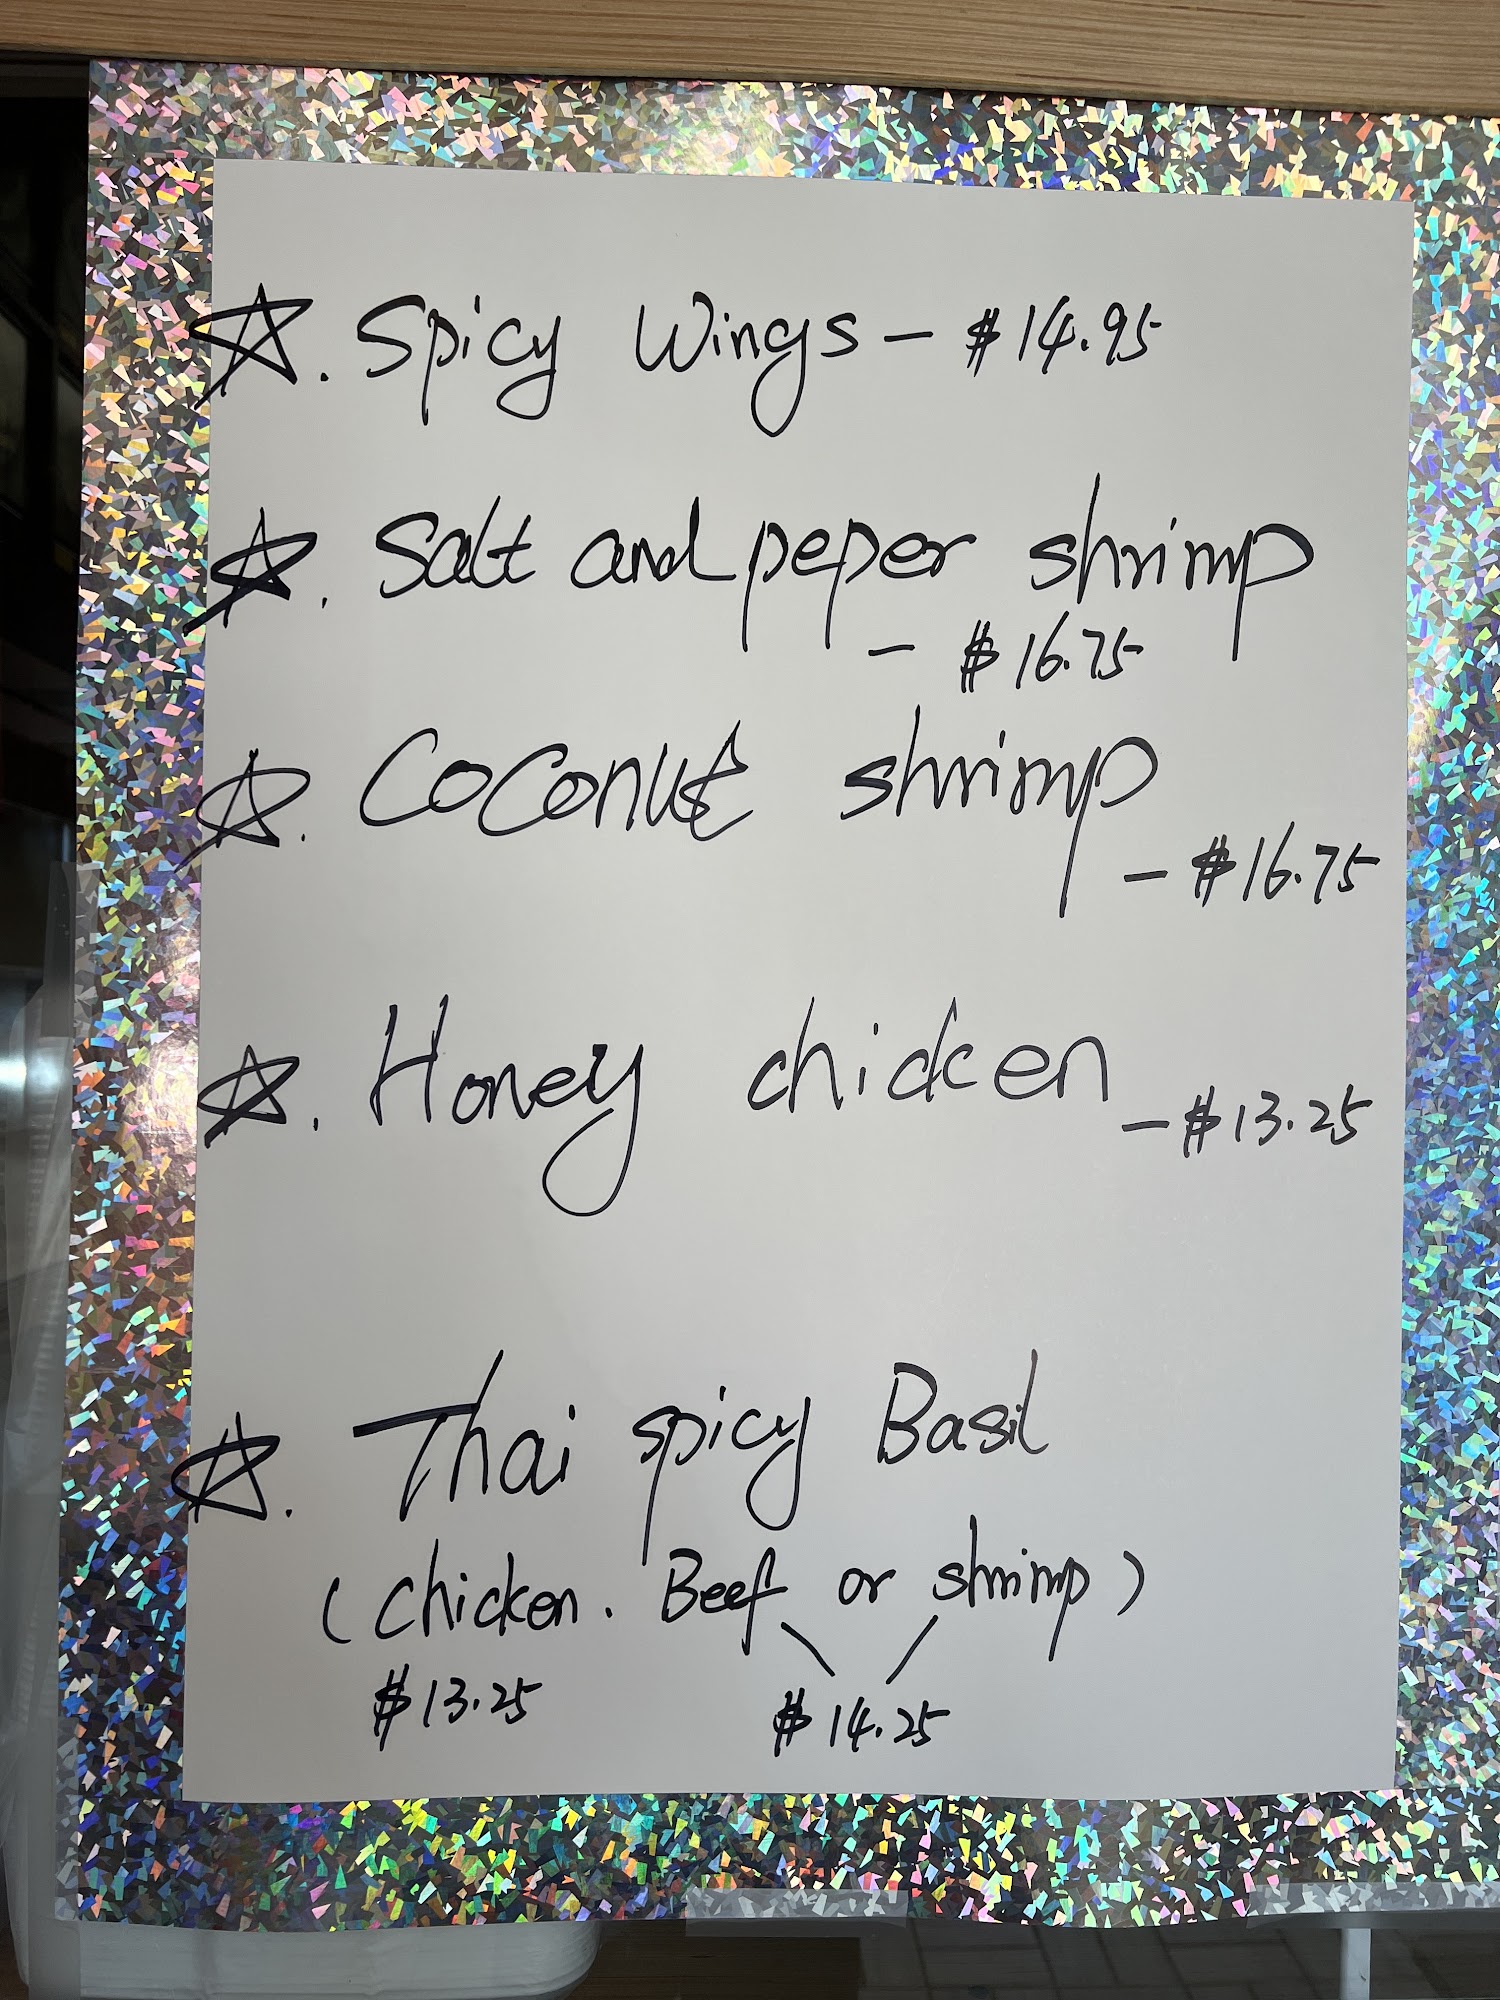 ☆. Spicy Wings - $14.95
☆. Salt and peper shrimp
- $16.75
☆. Coconut shrimp
- $16.75
☆. Honey chicken
- $13.25
☆. Thai spicy Basil
(chicken. Beef or shrimp)
$13.25 $14.25